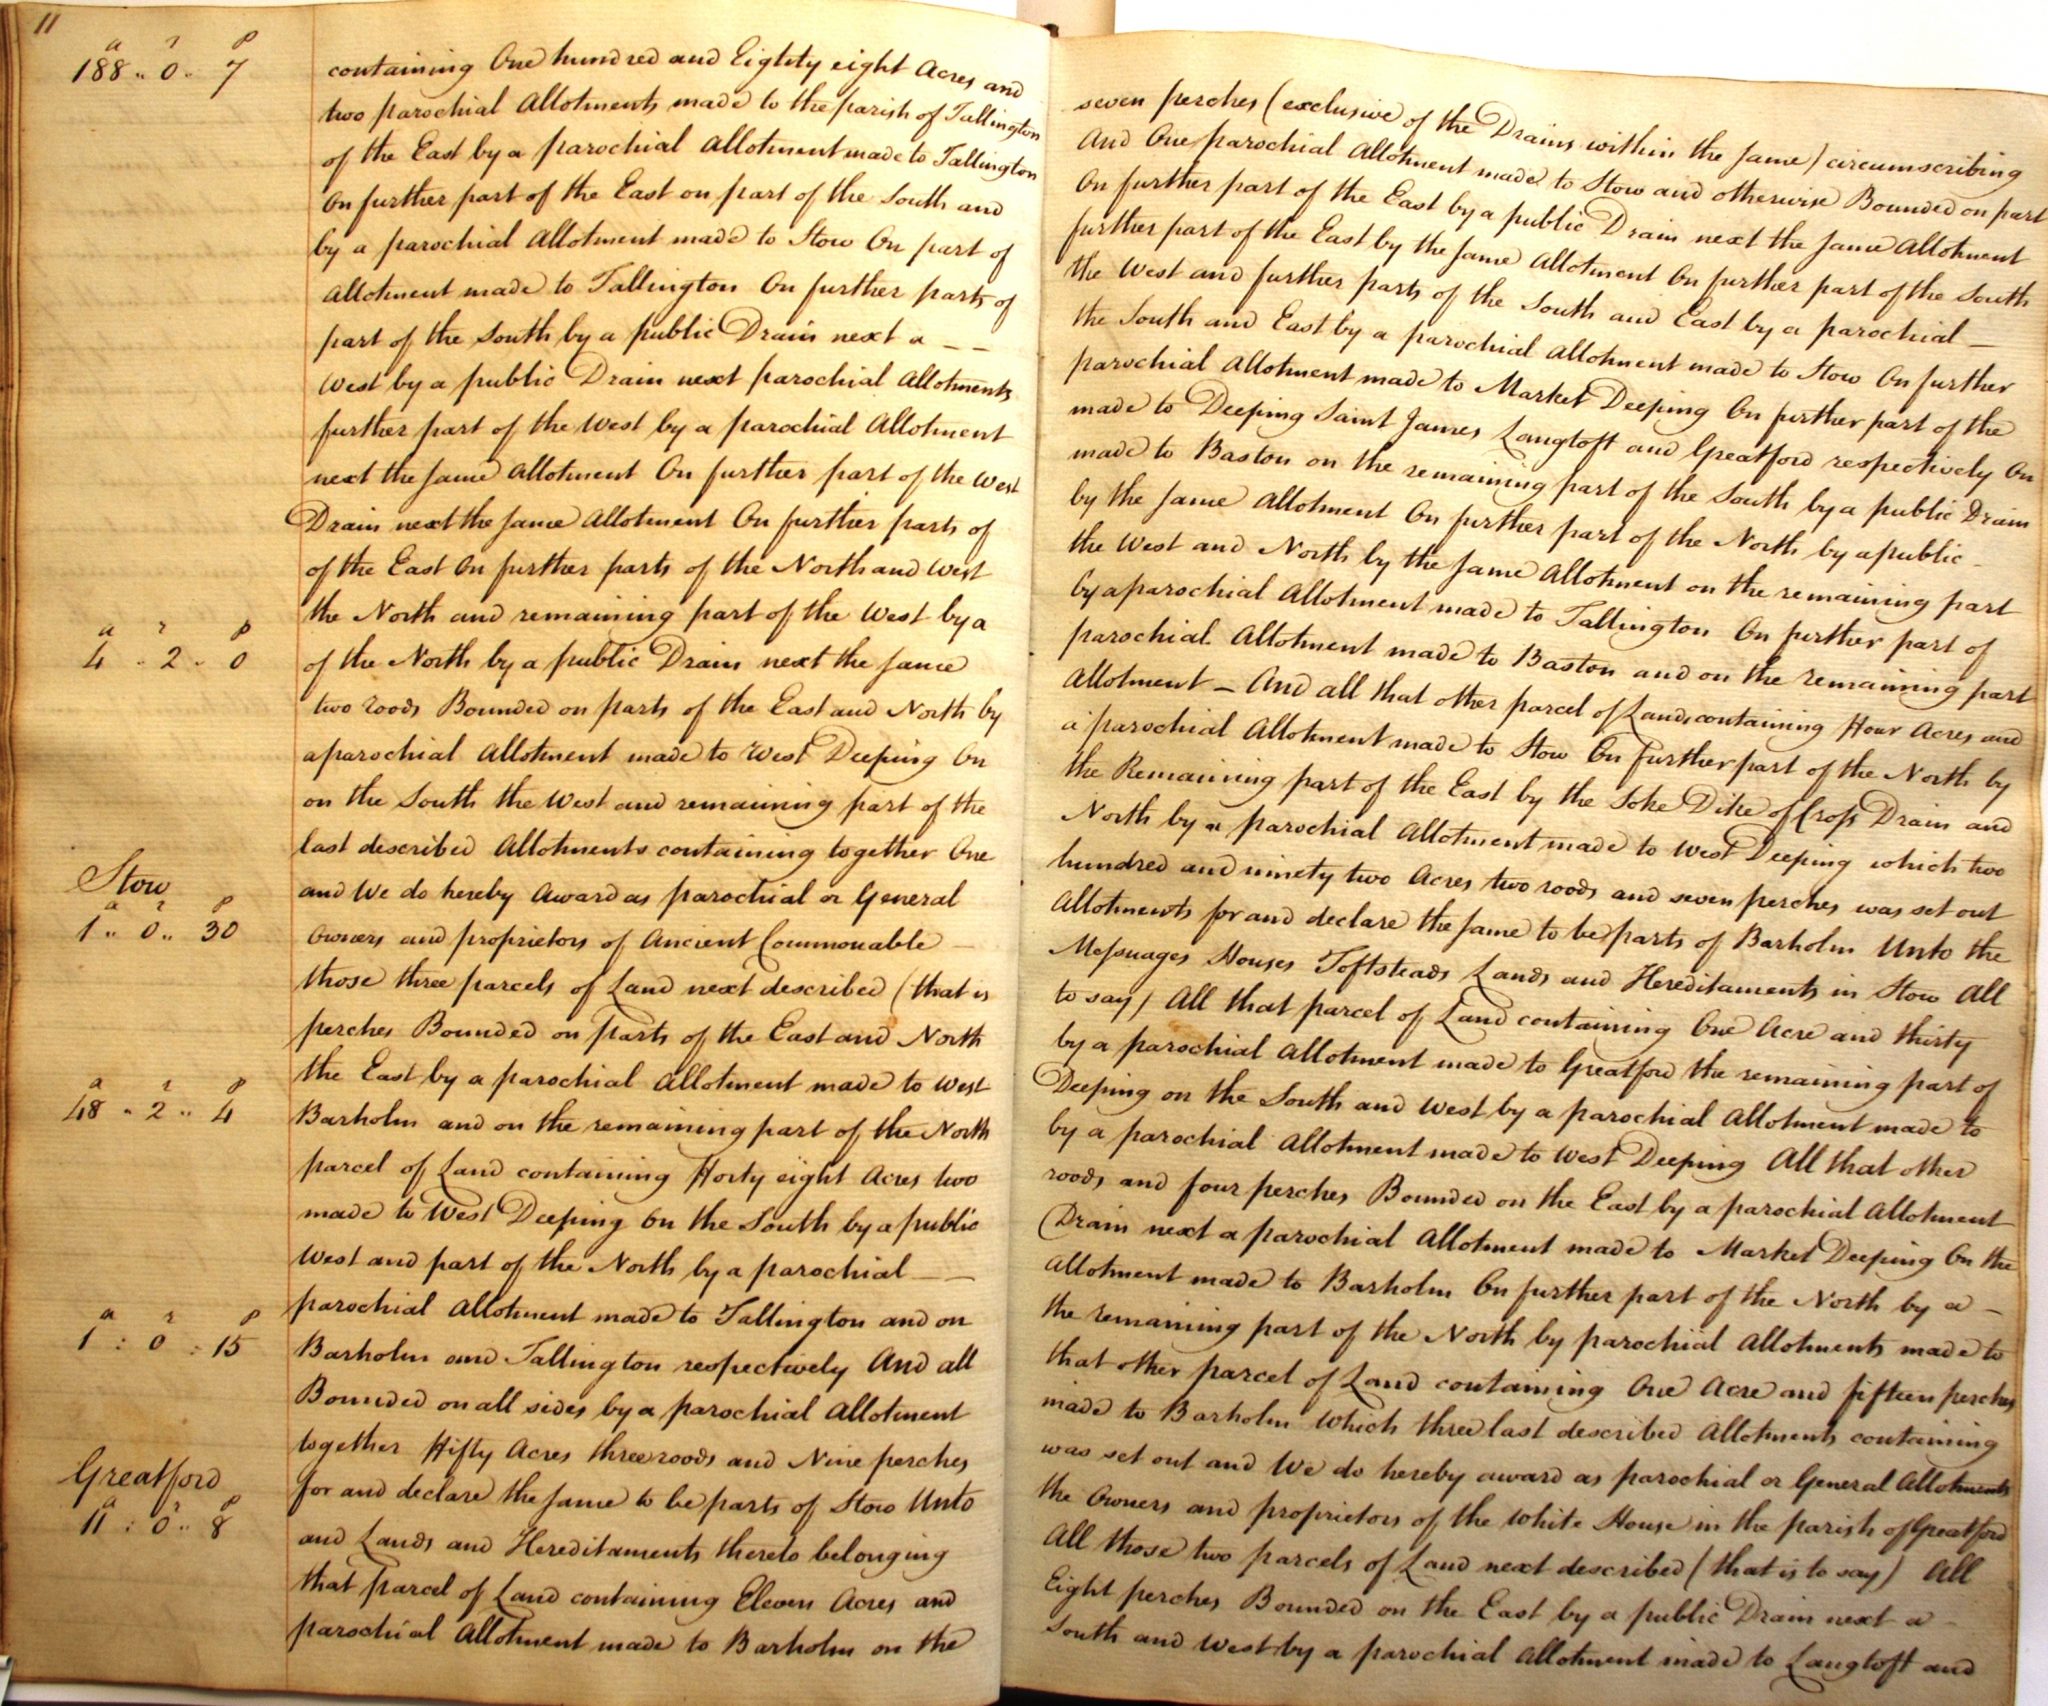 11
a r p
188 .. 0 .. 7
containing One hundred and Eighty eight Acres and seven perches (exclusive of the Drains within the same) circumscribing
two parochial Allotments made to the parish of Tallington And One parochial Allotment made to Stow and otherwise Bounded on part
of the East by a parochial Allotment made to Tallington On further part of the East by a public Drain next the same Allotment
On further part of the East on part of the South and further part of the East by the same Allotment On further part of the South
by a parochial Allotment made to Stow On part of the West and further parts of the South and East by a parochial —
Allotment made to Tallington On further parts of the South and East by a parochial Allotment made to Stow On further
part of the South by a public Drain next a — — parochial Allotment made to Market Deeping On further part of the
West by a public Drain next parochial Allotments made to Deeping Saint James Langtoft and Greatford respectively On
further part of the West by a parochial Allotment made to Baston on the remaining part of the South by a public Drain
next the same Allotment On further part of the West by the same Allotment On further part of the North by a public —
Drain next the same Allotment On further parts of the West and North by the same Allotment on the remaining part
of the East On further parts of the North and West by a parochial Allotment made to Tallington On further part of
the North and remaining part of the West by a parochial Allotment made to Baston and on the remaining part
a r p
4 .. 2 .. 0
of the North by a public Drain next the same Allotment — And all that other parcel of Land containing Four Acres and
two roods Bounded on parts of the East and North by a parochial Allotment made to Stow On further part of the North by
a parochial Allotment made to West Deeping On the Remaining part of the East by the Soke Dike of Cross Drain and
on the South the West and remaining part of the North by a parochial Allotment made to West Deeping which two
last described Allotments containing together One hundred and ninety two Acres two roods and seven perches was set out
Stow
and We do hereby Award as parochial or General Allotments for and declare the same to be parts of Barholm Unto the
a r p
1 .. 0 .. 30
Owners and proprietors of Ancient Commonable — Messuages Houses Toftsteads Lands and Hereditaments in Stow All
those three parcels of Land next described (that is to say) All that parcel of Land containing One Acre and thirty
perches Bounded on parts of the East and North by a parochial Allotment made to Greatford the remaining part of
the East by a parochial Allotment made to West Deeping on the South and West by a parochial Allotment made to
a r p
48 .. 2 .. 4
Barholm and on the remaining part of the North by a parochial Allotment made to West Deeping All that other
parcel of Land containing Forty eight Acres two roods and four perches Bounded on the East by a parochial Allotment
made to West Deeping On the South by a public Drain next a parochial Allotment made to Market Deeping On the
West and part of the North by a parochial — — Allotment made to Barholm On further part of the North by a —
parochial Allotment made to Tallington and on the remaining part of the North by parochial Allotments made to
a r p
1 : 0 : 15
Barholm and Tallington respectively And all that other parcel of Land containing One Acre and fifteen perches
Bounded on all sides by a parochial Allotment made to Barholm Which three last described Allotments containing
together Fifty Acres three roods and Nine perches was set out and We do hereby award as parochial or General Allotments
Greatford
for and declare the same to be parts of Stow Unto the Owners and proprietors of the White House in the parish of Greatford
a r p
11 : 0 .. 8
and Lands and Hereditaments thereto belonging All those two parcels of Land next described (that is to say) All
that parcel of Land containing Eleven Acres and Eight perches Bounded on the East by a public Drain next a —
parochial Allotment made to Barholm on the South and West by a parochial Allotment made to Langtoft and